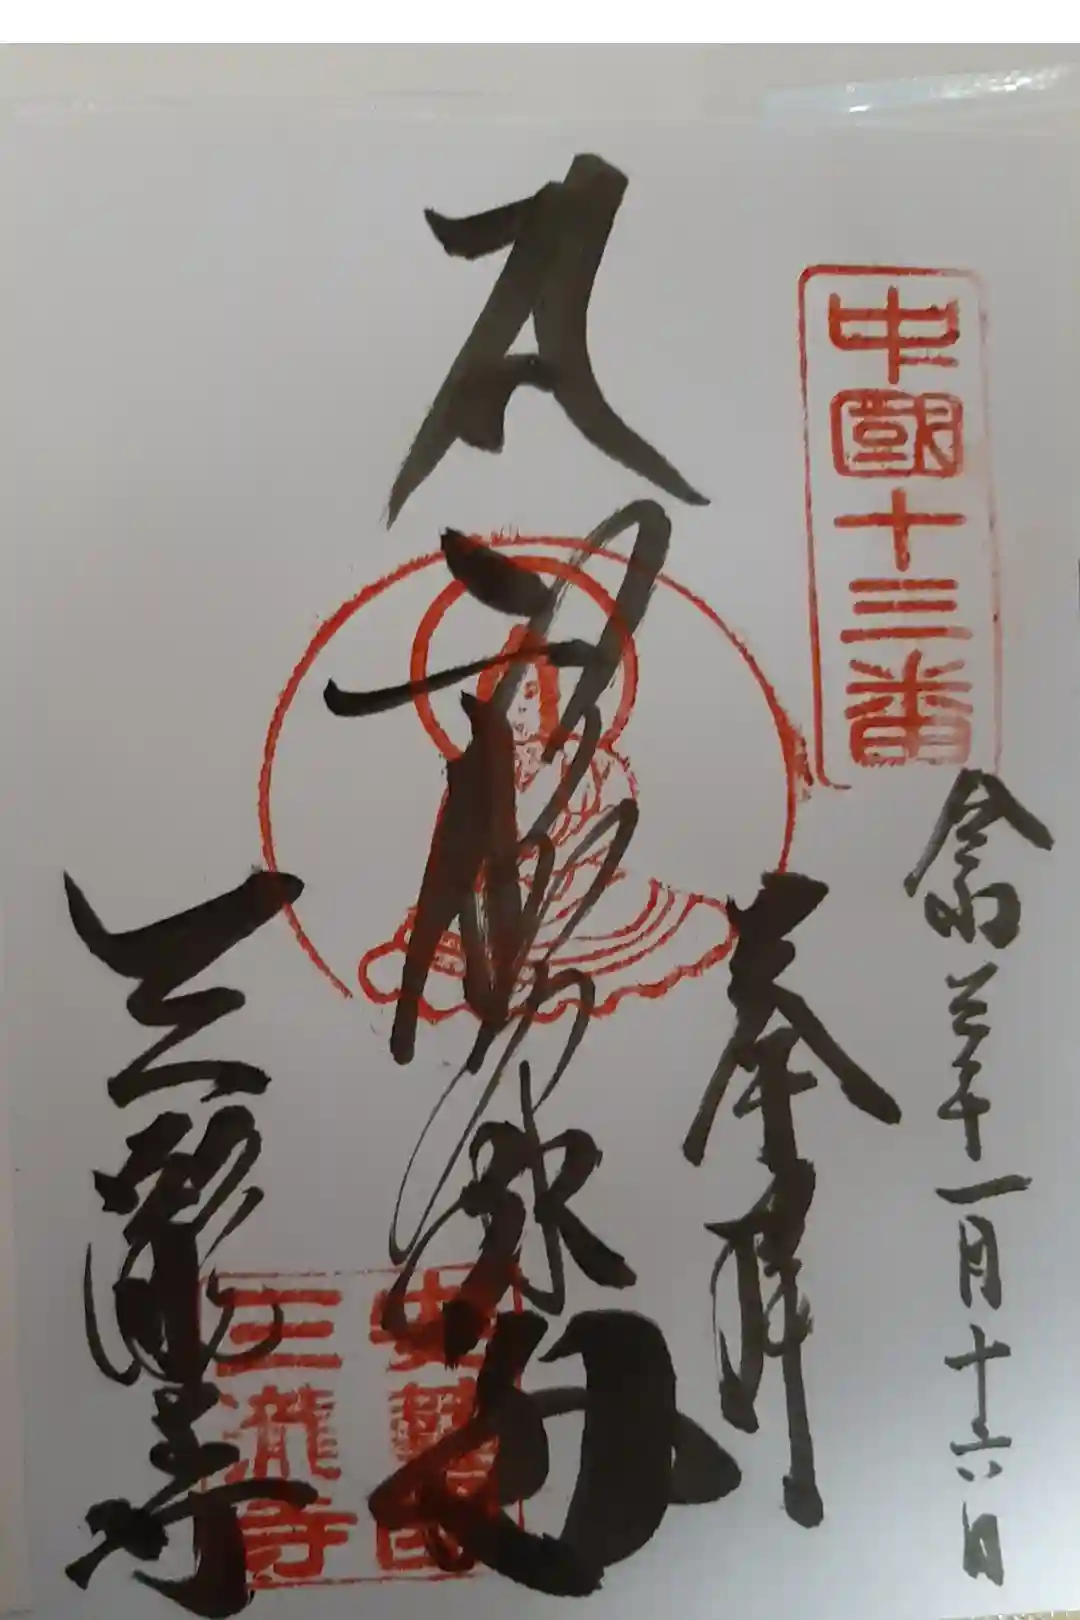 中國十三番
令和三年一月十六日
奉拝
三瀧寺
安藝國
三瀧寺